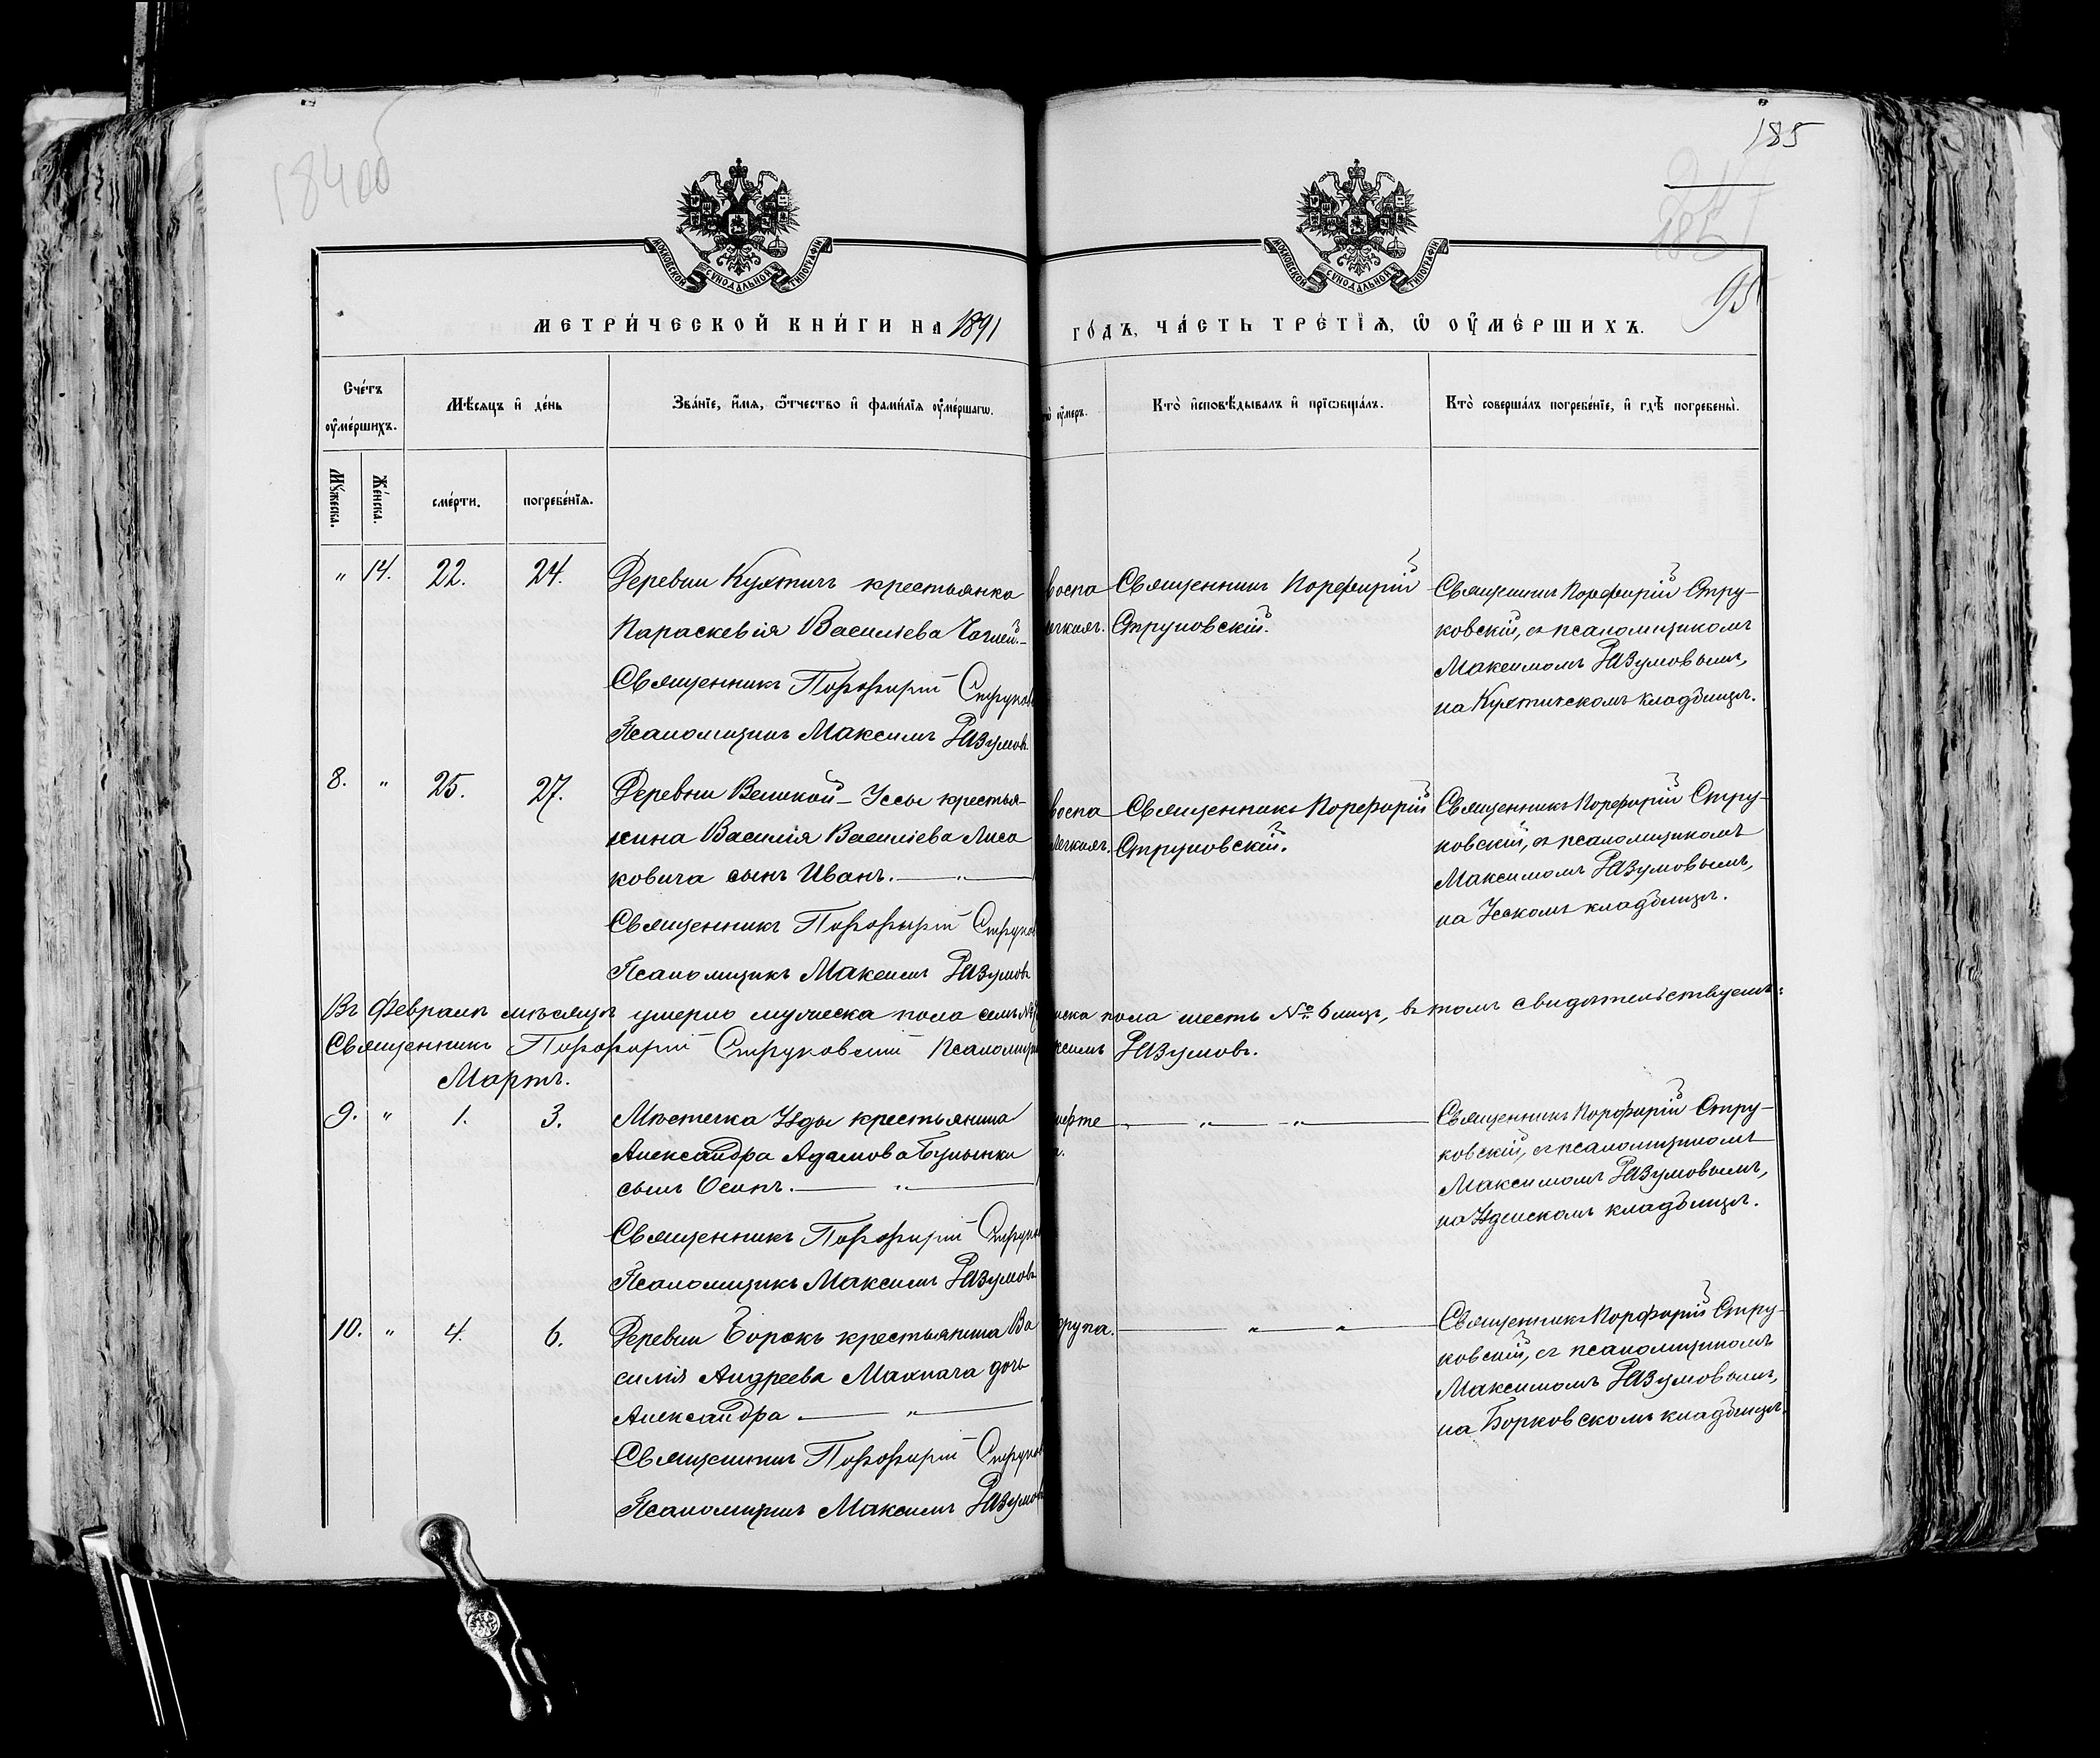 184об
185
185
95
МОСКОВСКОЙ СѴНОДАЛЬНОЙ ТИПОГРАФІИ
МОСКОВСКОЙ СѴНОДАЛЬНОЙ ТИПОГРАФІИ
МЕТРИ́ЧЕСКОЙ КНИ́ГИ НА 1891 ГО́ДЪ, ЧА́СТЬ ТРЕ́ТЇѦ, Ѡ҆ ОУ҆МЕ́РШИХЪ.
Сче́тъ оу҆ме́ршихъ.
Мѣ́сѧцъ и҆ де́нь
Зва́нїе, и҆́мѧ, ѻ҆́тчество и҆ фами́лїѧ оу҆ме́ршагѡ.
оу҆́меръ.
Кто̀ и҆сповѣ́дывалъ и҆ прїѡбща́лъ.
Кто̀ соверша́лъ погребе́нїе, и҆ гдѣ̀ погребены̀.
Му́жеска.
Же́нска.
сме́рти.
погребе́нїѧ.
" 14. 22. 24.
Деревни Кухтичъ крестьянка
Параскевія Васильева
Священникъ Порфирій Струков
Псаломщикъ Максимъ Разумовъ
воспа
легких.
Священникъ Порфирій
Струковскій.
Священникъ Порфирій Стру-
ковскій, съ псаломщикомъ
Максимомъ Разумовымъ,
на Кухтичскомъ кладбищѣ.
8. " 25. 27.
Деревни Великой-Уссы крестья-
нина Василія Васильева Лиса
ковича сынъ Иванъ. — " —
Священникъ Порфирій Струков
Псаломщикъ Максимъ Разумовъ
воспа
легких.
Священникъ Порфирій
Струковскій.
Священникъ Порфирій Стру-
ковскій, съ псаломщикомъ
Максимомъ Разумовымъ,
на Усскомъ кладбищѣ.
Въ Февралѣ мѣсяцѣ умерло мужеска пола семь нска пола шесть № 6 лицъ, въ томъ свидѣтельствуемъ:
Священникъ Порфирій Струковскій Псаломщи ксимъ Разумовъ.
Мартъ.
9. " 1. 3.
Мѣстечка Узды крестьянина
Александра Адамова Булынки
сынъ Осипъ. — " —
Священникъ Порфирій Струко
Псаломщикъ Максимъ Разумовъ
— " — " —
Священникъ Порфирій Стру-
ковскій, съ псаломщикомъ
Максимомъ Разумовымъ,
на Узденскомъ кладбищѣ.
10. " 4. 6.
Деревни Борокъ крестьянина Ва
силія Андреева Махнача дочь
Александра. — " —
Священникъ Порфирій Струков
Псаломщикъ Максимъ Разумовъ
крупа.
— " — " —
Священникъ Порфирій Стру-
ковскій, съ псаломщикомъ
Максимомъ Разумовымъ,
на Борковскомъ кладбищѣ.